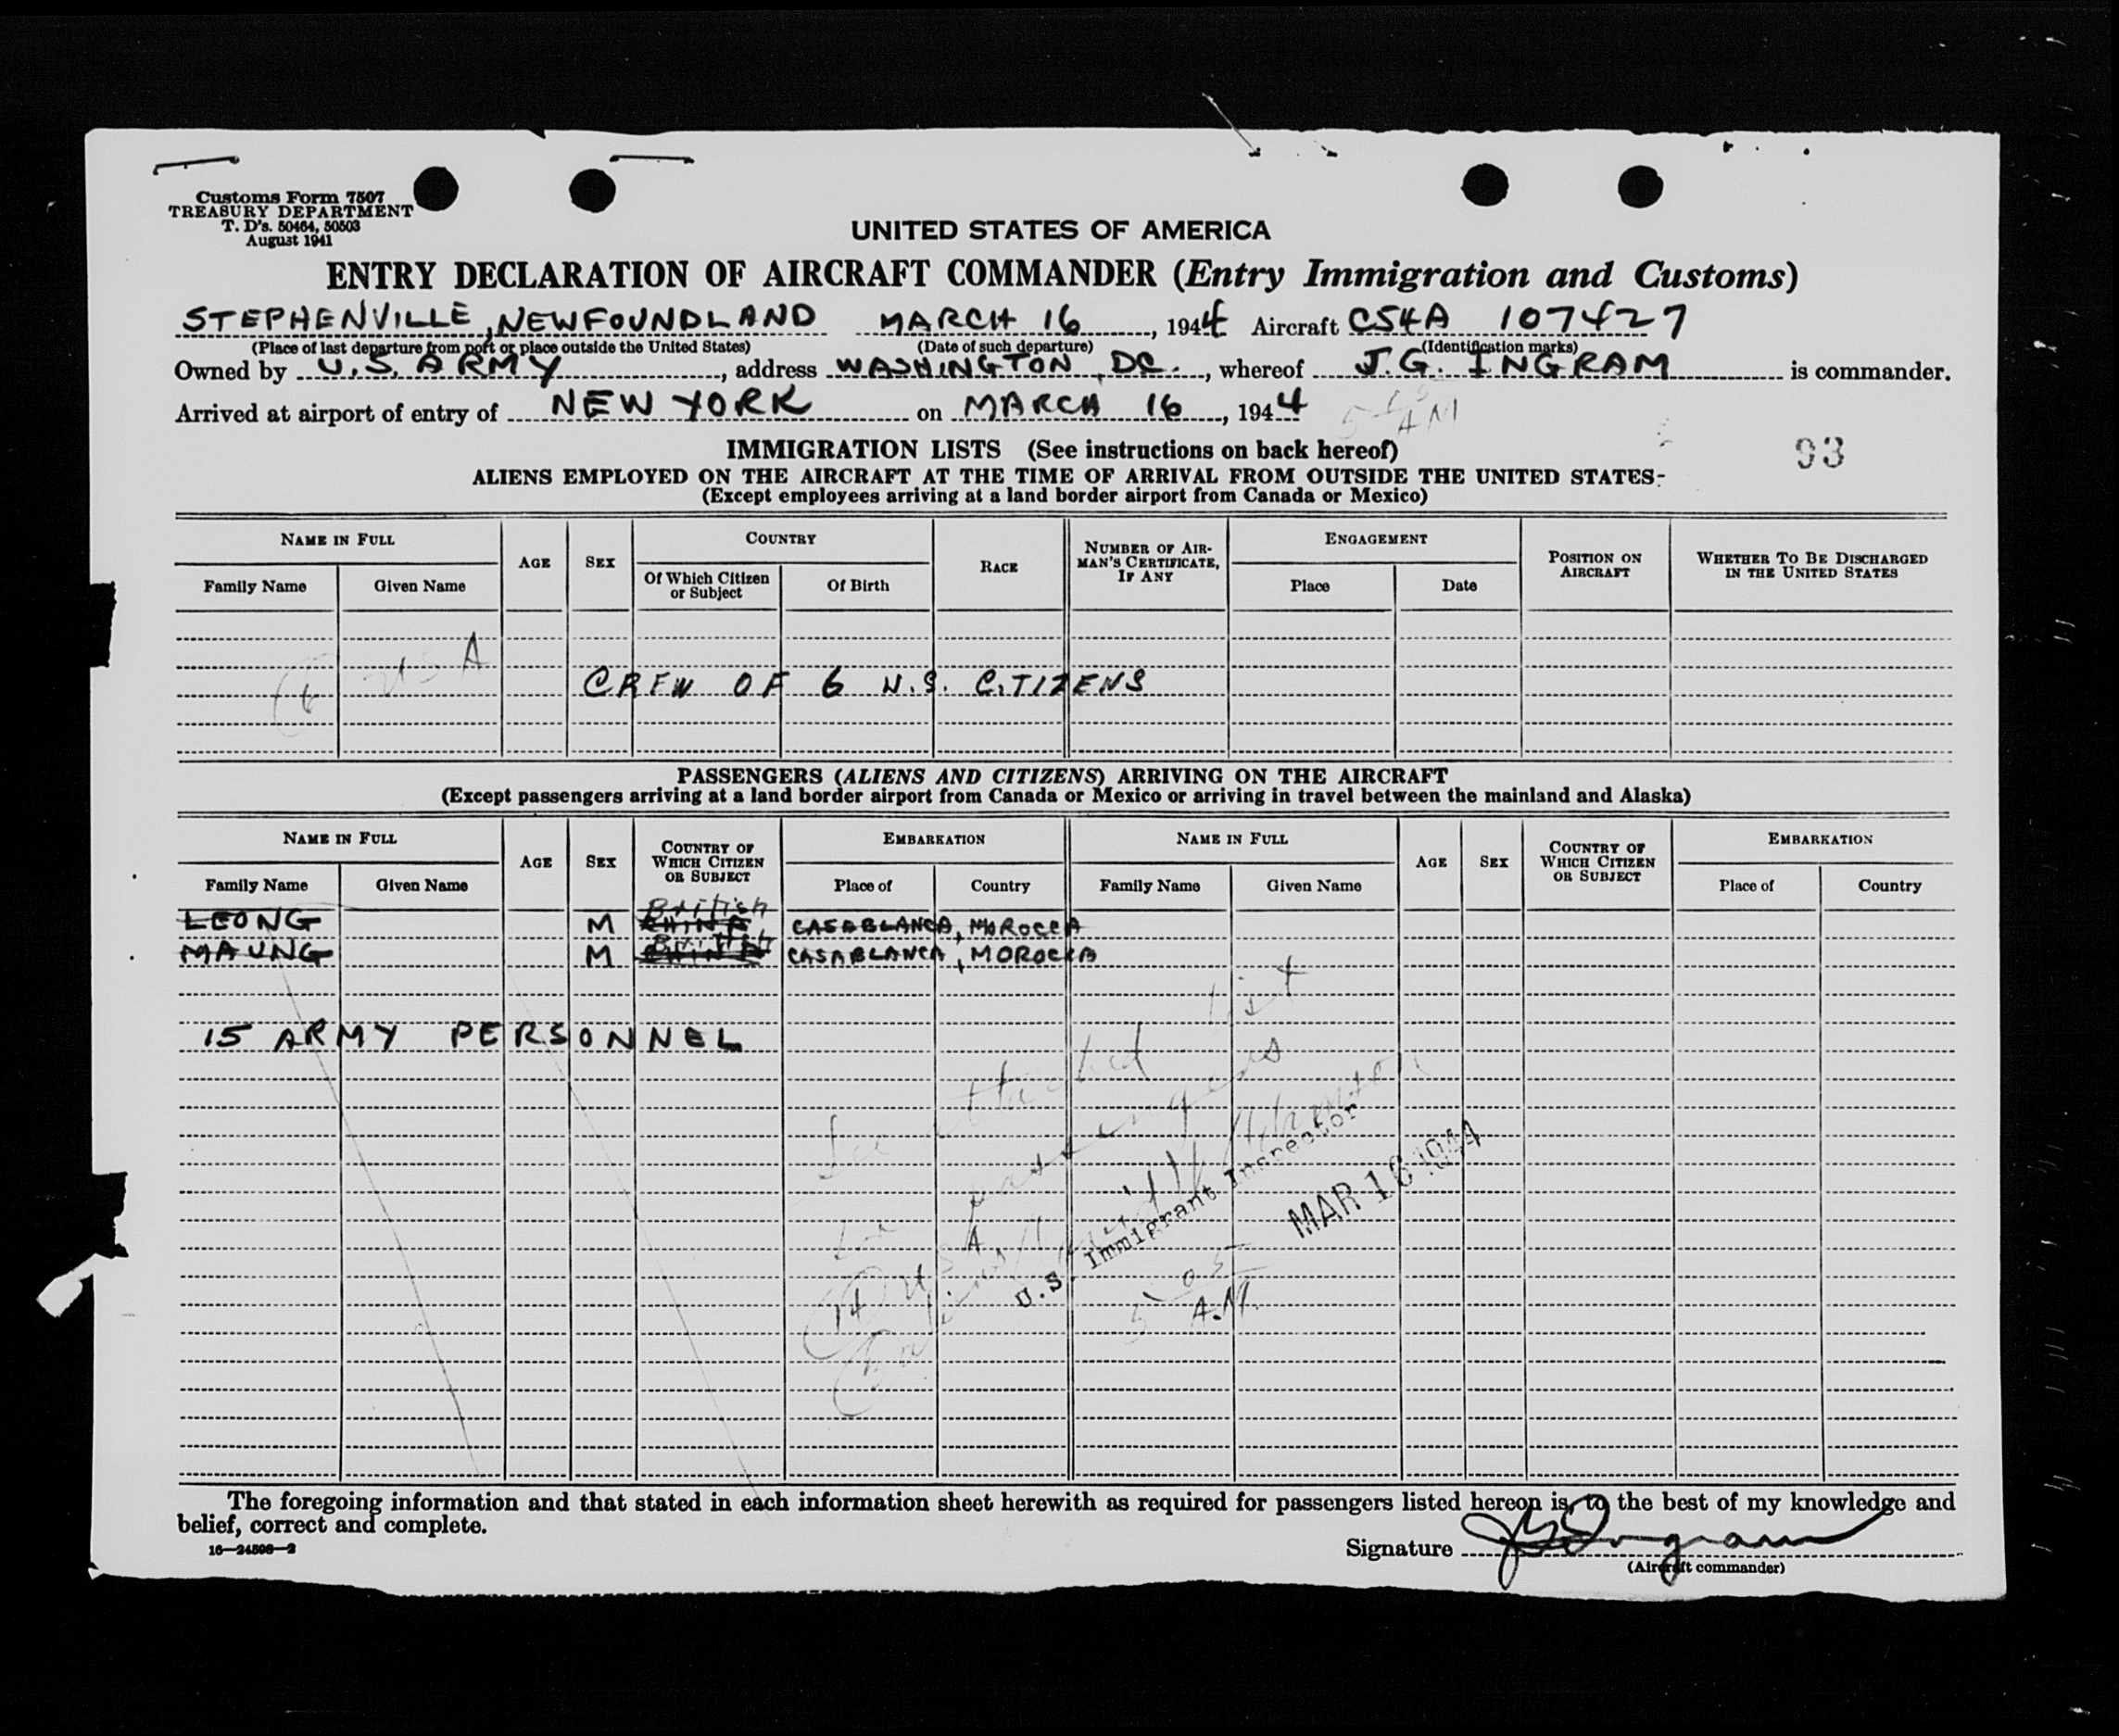 Customs Form 7507
TREASURY DEPARTMENT
T. D's. 50464, 50503
August 1941
UNITED STATES OF AMERICA
ENTRY DECLARATION OF AIRCRAFT COMMANDER (Entry Immigration and Customs)
STEPHENVILLE, NEWFOUNDLAND MARCH 16, 1944 Aircraft C54A 107427
(Place of last departure from port or place outside the United States) (Date of such departure) (Identification marks)
Owned by U.S. ARMY, address WASHINGTON, DC., whereof J.G. INGRAM is commander.
Arrived at airport of entry of NEW YORK on MARCH 16, 1944
AM
IMMIGRATION LISTS (See instructions on back hereof)
93
ALIENS EMPLOYED ON THE AIRCRAFT AT THE TIME OF ARRIVAL FROM OUTSIDE THE UNITED STATES-
(Except employees arriving at a land border airport from Canada or Mexico)
NAME IN FULL AGE SEX COUNTRY RACE NUMBER OF AIRMAN'S CERTIFICATE, IF ANY ENGAGEMENT POSITION ON AIRCRAFT WHETHER TO BE DISCHARGED IN THE UNITED STATES
Family Name Given Name Of Which Citizen or Subject Of Birth Place Date
6 USA
CREW OF 6 U.S. CITIZENS
PASSENGERS (ALIENS AND CITIZENS) ARRIVING ON THE AIRCRAFT
(Except passengers arriving at a land border airport from Canada or Mexico or arriving in travel between the mainland and Alaska)
NAME IN FULL AGE SEX COUNTRY OF WHICH CITIZEN OR SUBJECT EMBARKATION NAME IN FULL AGE SEX COUNTRY OF WHICH CITIZEN OR SUBJECT EMBARKATION
Family Name Given Name Place of Country Family Name Given Name Place of Country
British
LEONG M CHINA CASABLANCA, MOROCCA
British
MAUNG M CHINA CASABLANCA, MOROCCA
15 ARMY PERSONNEL
See attached list
passengers
U.S. Immigrant Inspector
MAR 16 1944
14 USA
5 05 A.M.
The foregoing information and that stated in each information sheet herewith as required for passengers listed hereon is, to the best of my knowledge and
belief, correct and complete.
16—24598—2
Signature JG Ingram
(Aircraft commander)